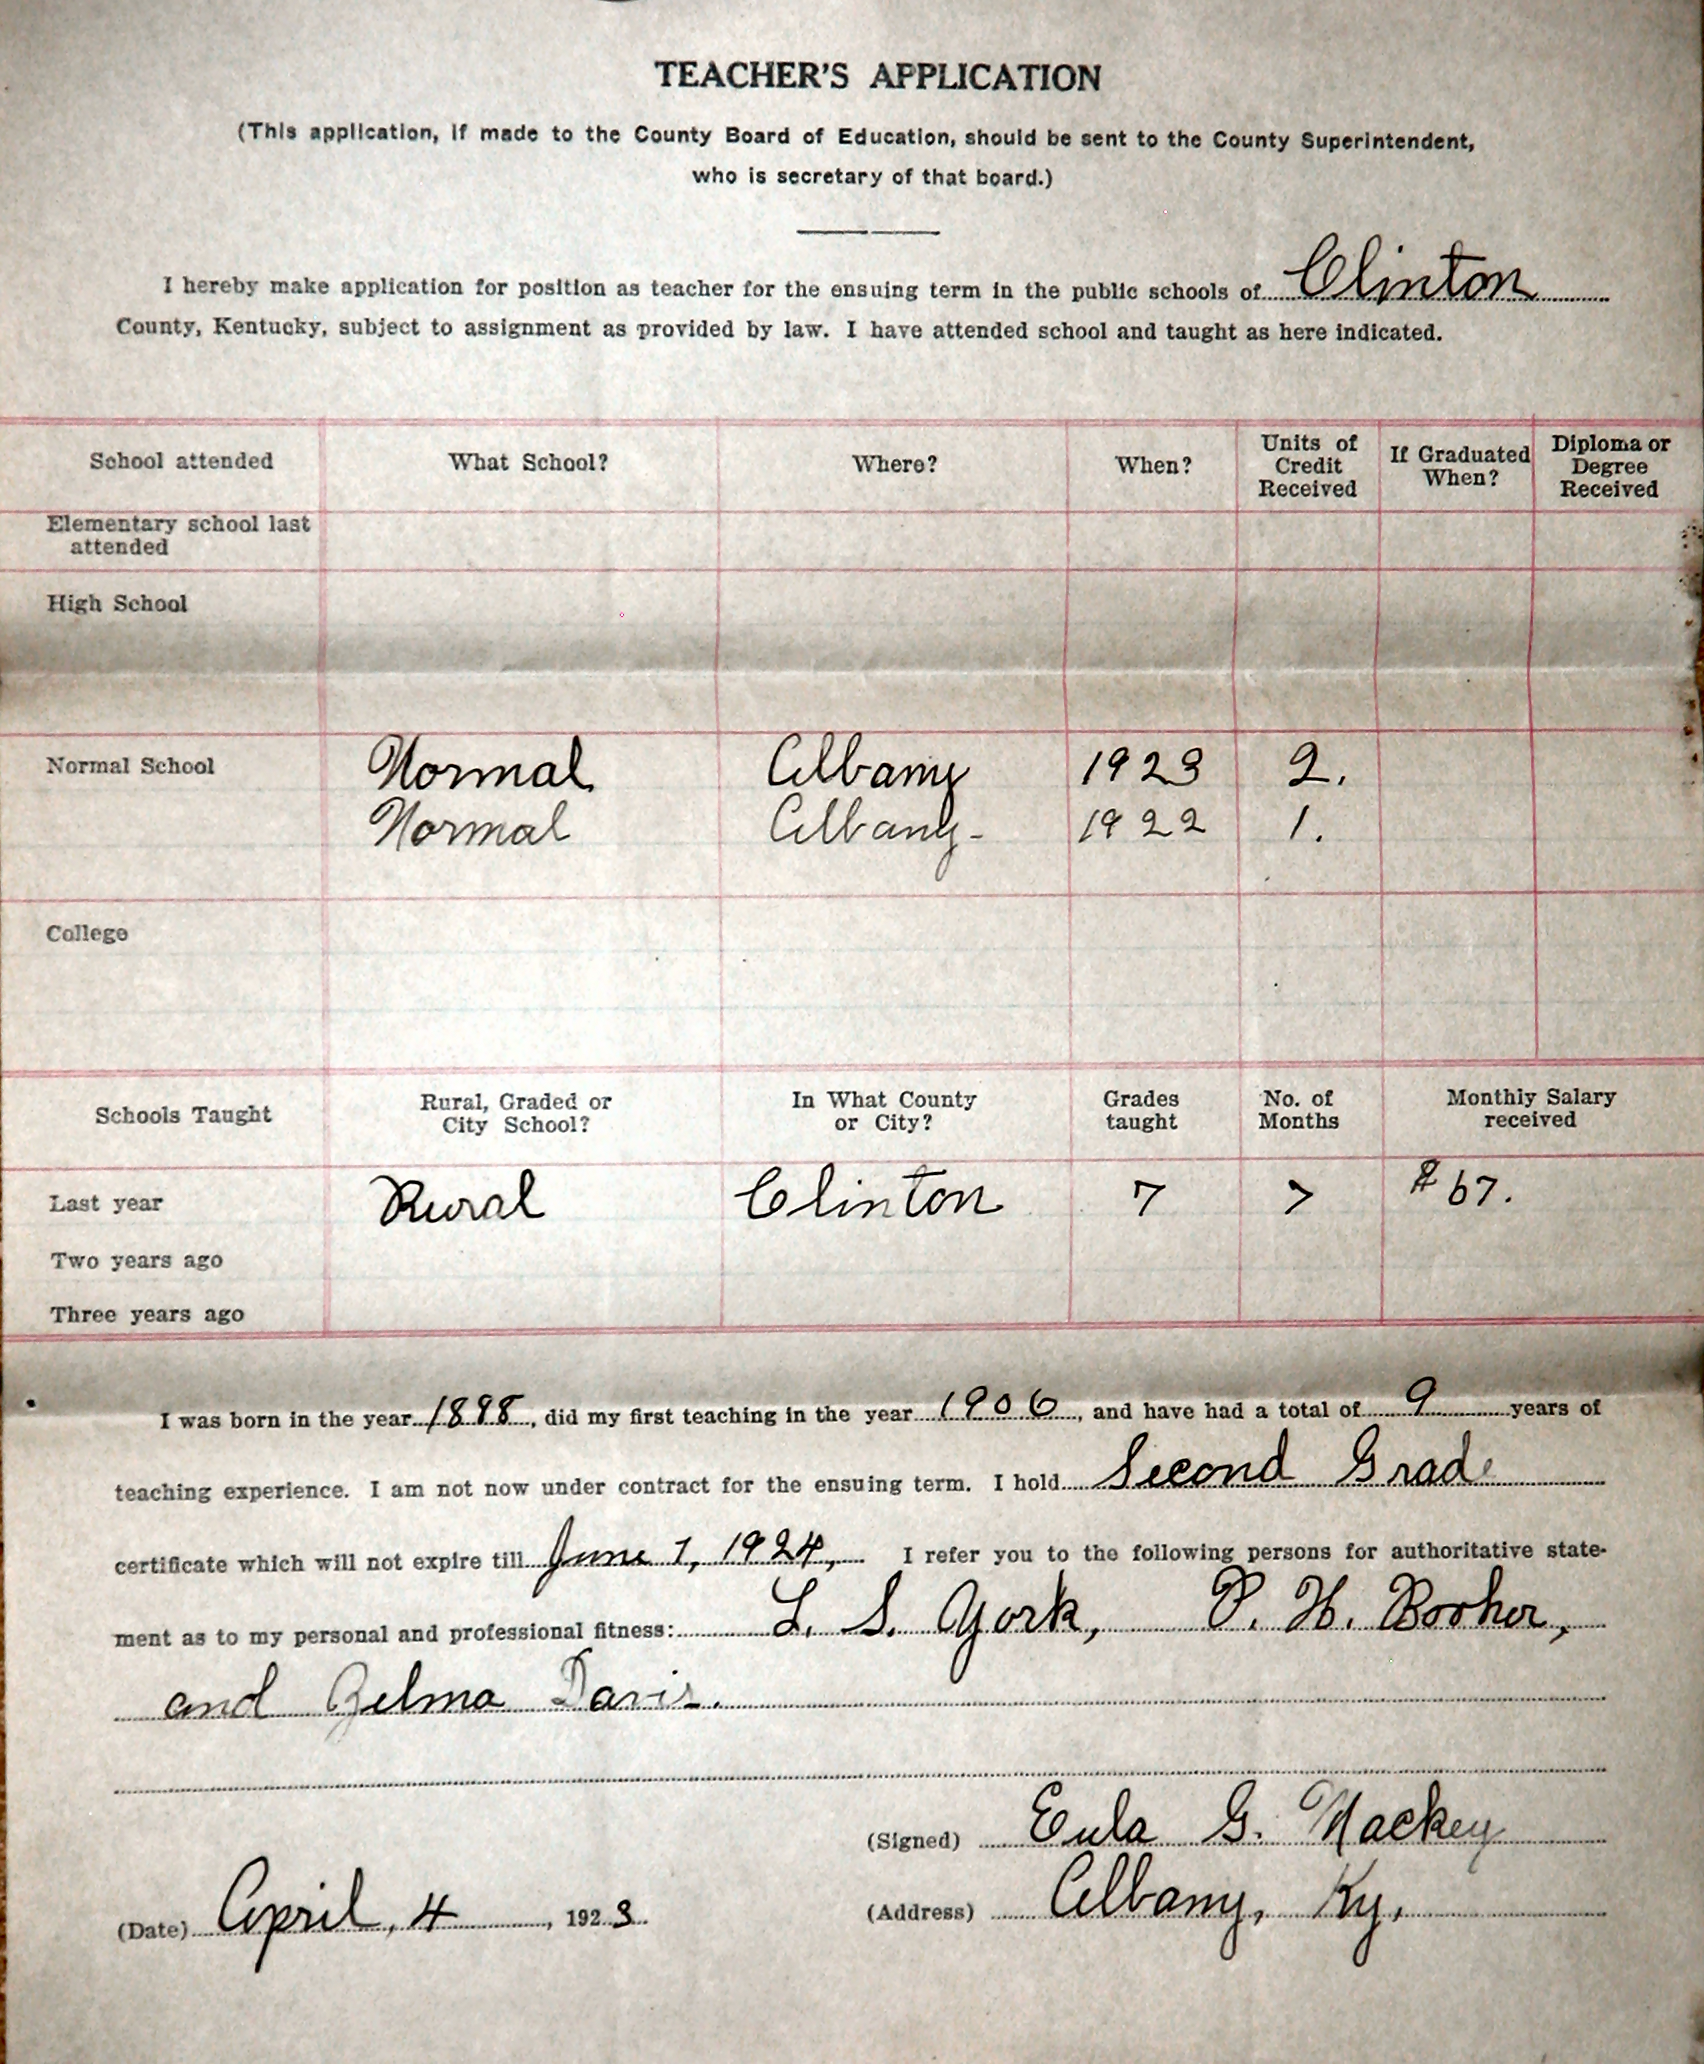 TEACHER'S APPLICATION
(This application, if made to the County Board of Education, should be sent to the County Superintendent,
who is secretary of that board.)
I hereby make application for position as teacher for the ensuing term in the public schools of Clinton
County, Kentucky, subject to assignment as provided by law. I have attended school and taught as here indicated.
School attended What School? Where? When? Units of Credit Received If Graduated When? Diploma or Degree Received
Elementary school last
attended
High School
Normal School Normal Albany 1923 2.
Normal Albany- 1922 1.
College
Schools Taught Rural, Graded or City School? In What County or City? Grades taught No. of Months Monthly Salary received
Last year Rural Clinton 7 7 $67.
Two years ago
Three years ago
I was born in the year 1888, did my first teaching in the year 1906, and have had a total of 9 years of
teaching experience. I am not now under contract for the ensuing term. I hold Second Grade
certificate which will not expire till June 1, 1924, I refer you to the following persons for authoritative state-
ment as to my personal and professional fitness: L. S. York, P. H. Booher,
and Zelma Davis.
(Signed) Eula G. Mackey
(Date) April, 4, 1923.
(Address) Albany, Ky,